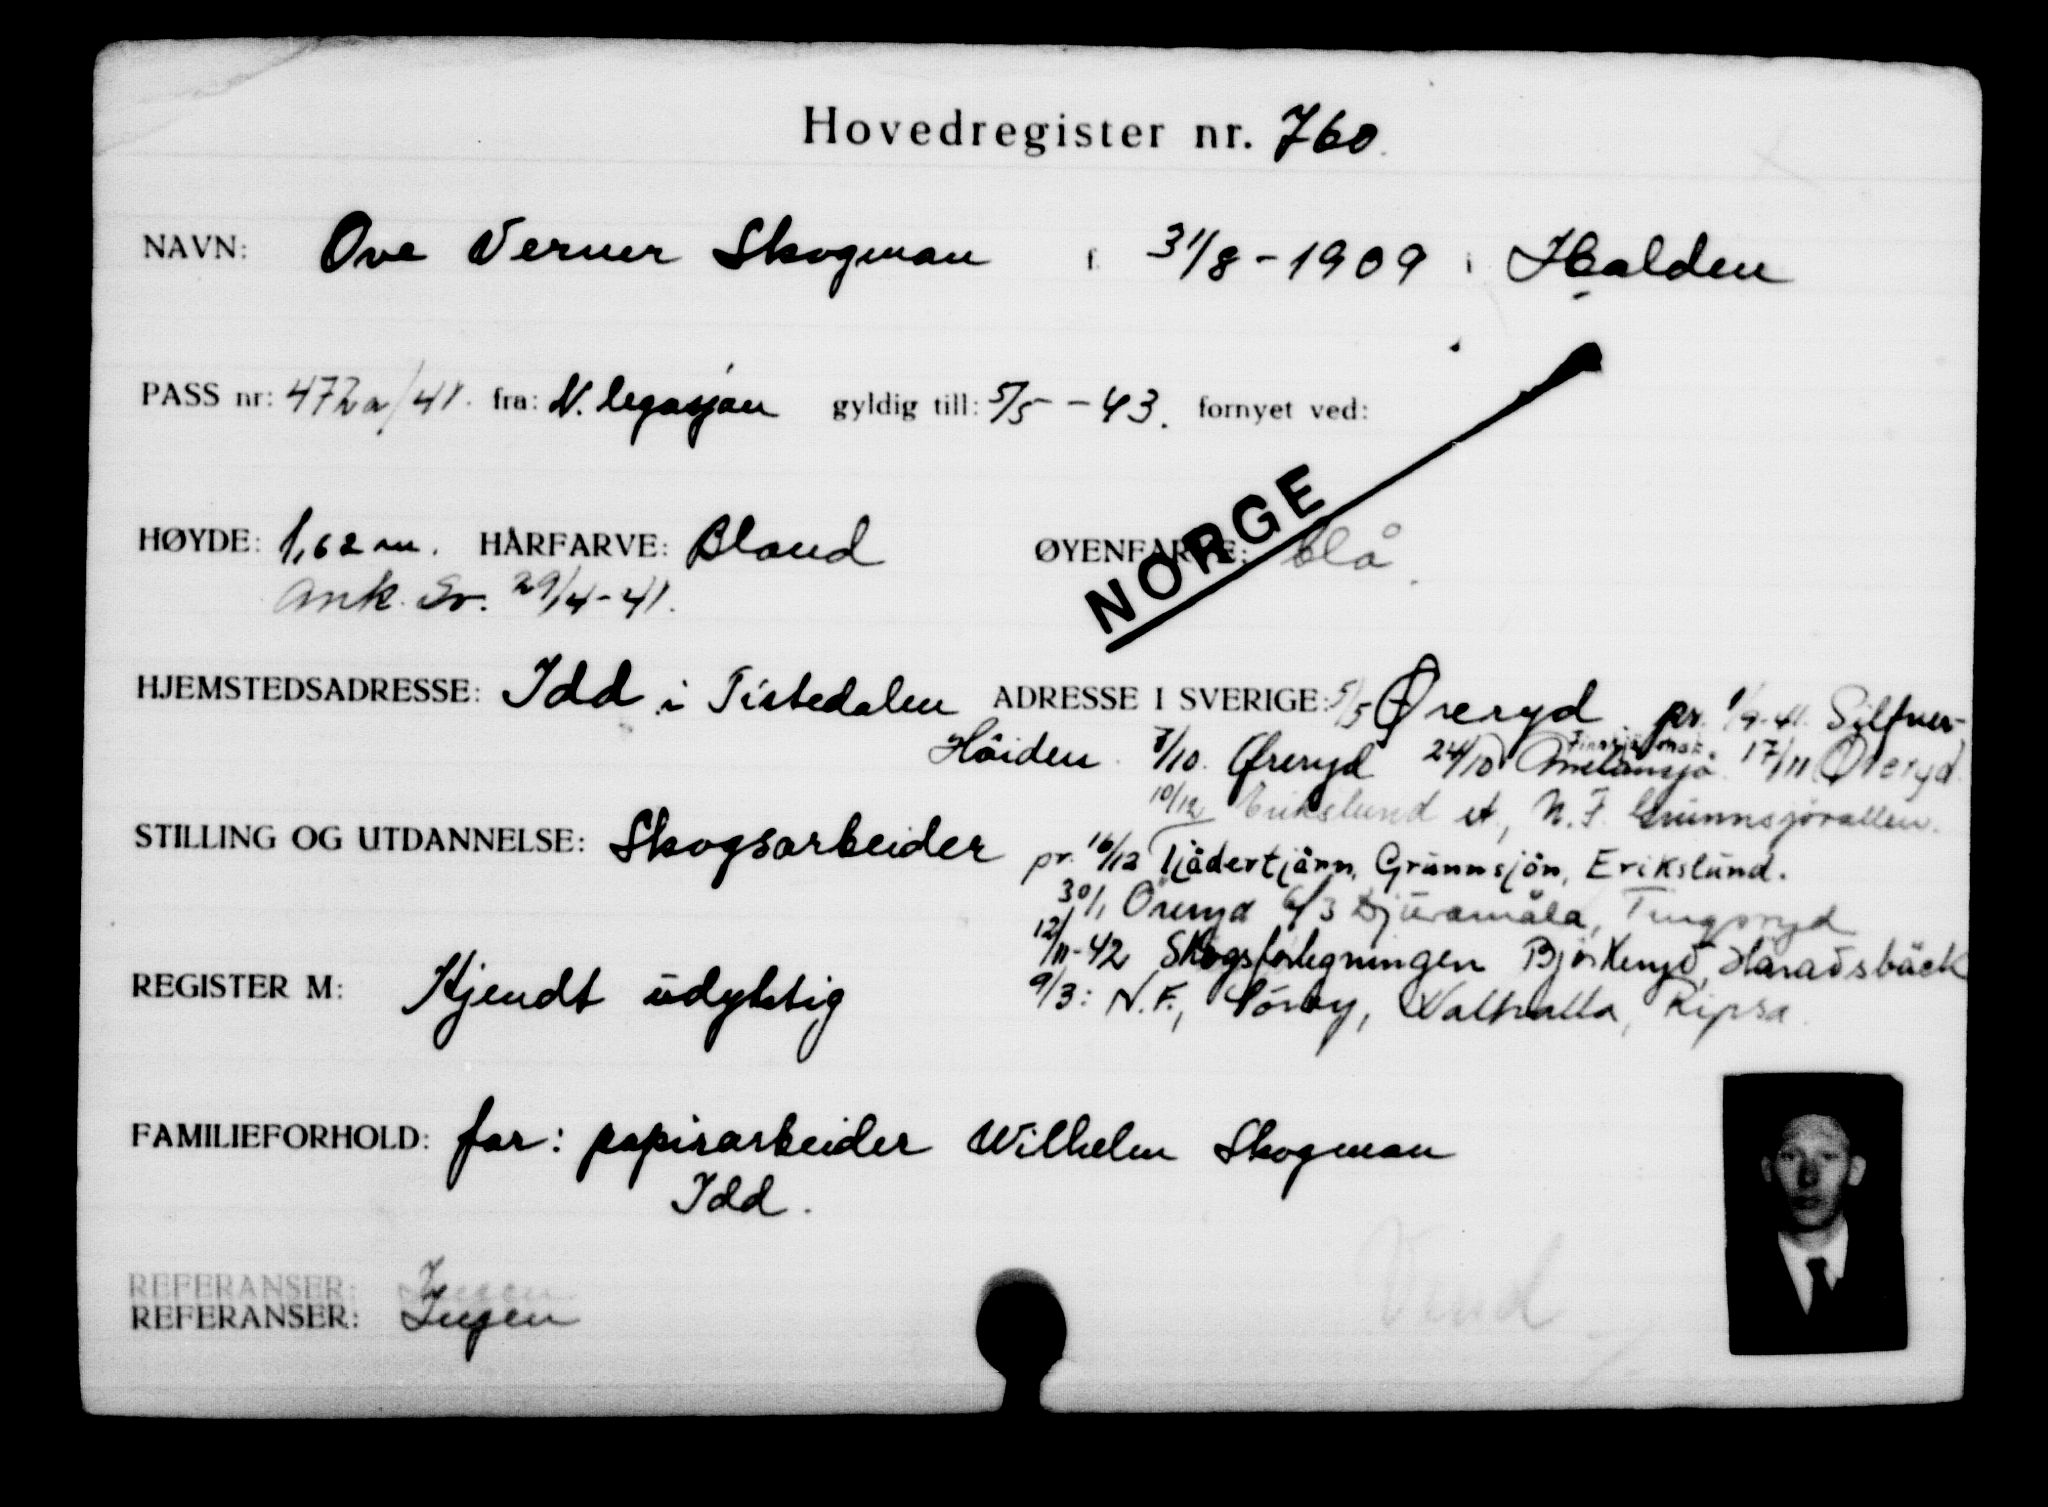 Hovedregister nr. 760.
NAVN: Ove Verner Skogman f. 31/8-1909 i Halden
PASS nr: 472a/41. fra: N. legasjon gyldig till: 5/5-43. fornyet ved:
HØYDE: 1,62 m. HÅRFARVE: Blond ØYENFARVE: blå.
NORGE
Ank. Sv. 29/4-41.
HJEMSTEDSADRESSE: Idd i Tistedalen ADRESSE I SVERIGE: 5/5 Øreryd pr. 1/9-41. Silfver-
Höiden 8/10. Øreryd 24/10 17/11 Øreryd
10/12 Erikslund st, N.F. Grunnsjövallen.
STILLING OG UTDANNELSE: Skogsarbeider pr. 16/12 Tjädertjärn, Grunnsjön, Erikslund.
30/1 Öreryd 6/3 Djuramåla, Tingsryd
12/11-42 Skogsforlegningen Björkeryd, Haradsbäck
REGISTER M: Kjendt udyktig 9/3: N.F., Valhalla, Ripsa.
FAMILIEFORHOLD: far: papirarbeider Wilhelm Skogman
Idd.
Vend
REFERANSER: Ingen
REFERANSER: Ingen